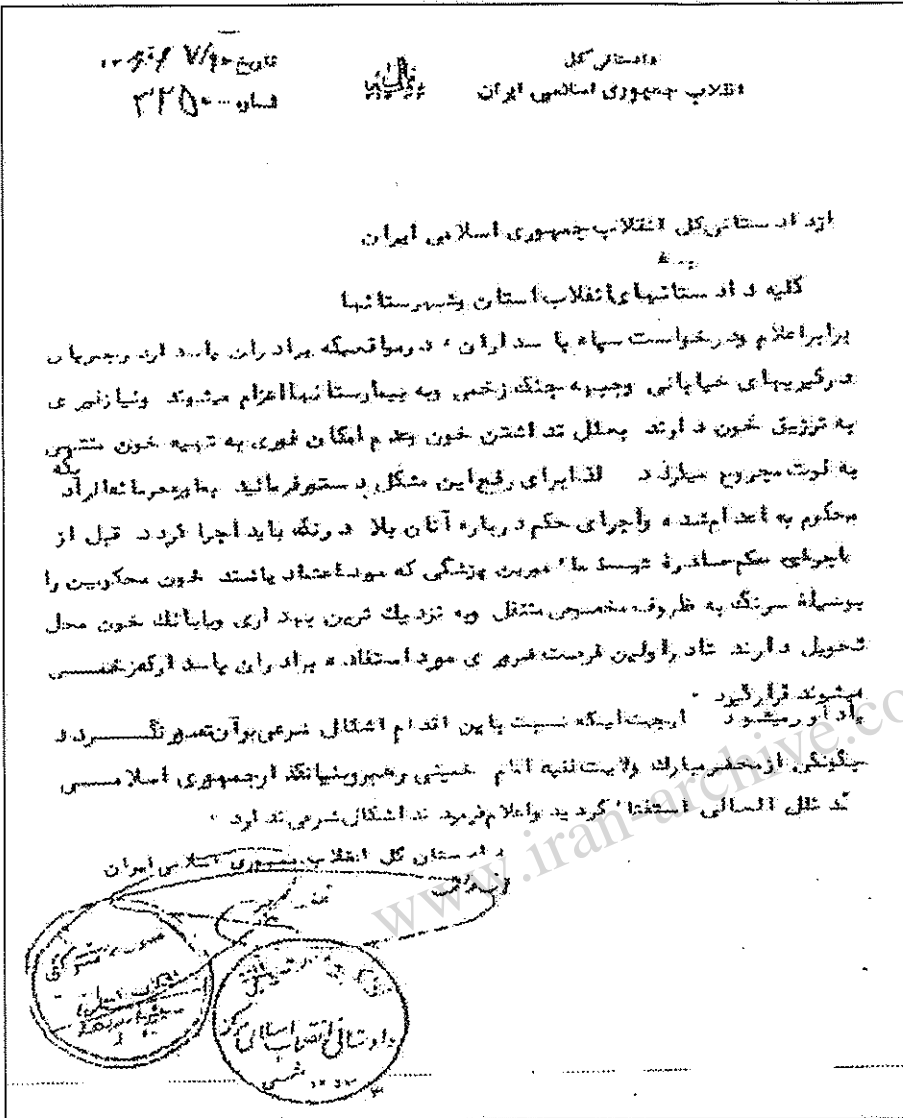 دادستانی کل
انقلاب جمهوری اسلامی ایران
تاریخ
شماره ۳۲۵۰۰
ازدادستانی کل انقلاب جمهوری اسلامی ایران
به
کلیه دادستانهای انقلاب استان وشهرستانها
برابراعلام ودرخواست سپاه پاسداران ، درمواقعیکه برادران پاسدار درجریان
درگیریهای خیابانی وجبهه جنگ زخمی وبه بیمارستانها اعزام میشوند ونیازفوری
به تزریق خون دارند بعلل نداشتن خون وعدم امکان فوری به تهیه خون منتهی
به فوت مجروح میگردد لذابرای رفع این مشکل دستورفرمائید بطورمحرمانه افراد
محکوم به اعدام شده واجرای حکم درباره آنان بلا درنگ باید اجرا گردد قبل از
حکم صادره توسط مامورین پزشکی که مورداعتماد باشند خون محکومین را
بوسیله سرنگ به ظروف مخصوص منتقل وبه نزدیك ترین بهداری ویابانك خون محل
تحویل دارند تادراولین فرصت فوری مورد استفاده برادران پاسدارکه زخمی
میشوند قرارگیرد .
یادآورمیشود ازجهت اینکه نسبت باین اقدام اشکال شرعی برآن تصورنگردد
چگونگی ازمحضرمبارك ولایت فقیه امام خمینی رهبروبنیانگذارجمهوری اسلامی
استفتاء گردید واعلام فرمودند اشکال شرعی ندارد .
دادستان کل انقلاب جمهوری اسلامی ایران
دادستانی انقلاب اسلامی مرکز
www.iran-archive.co